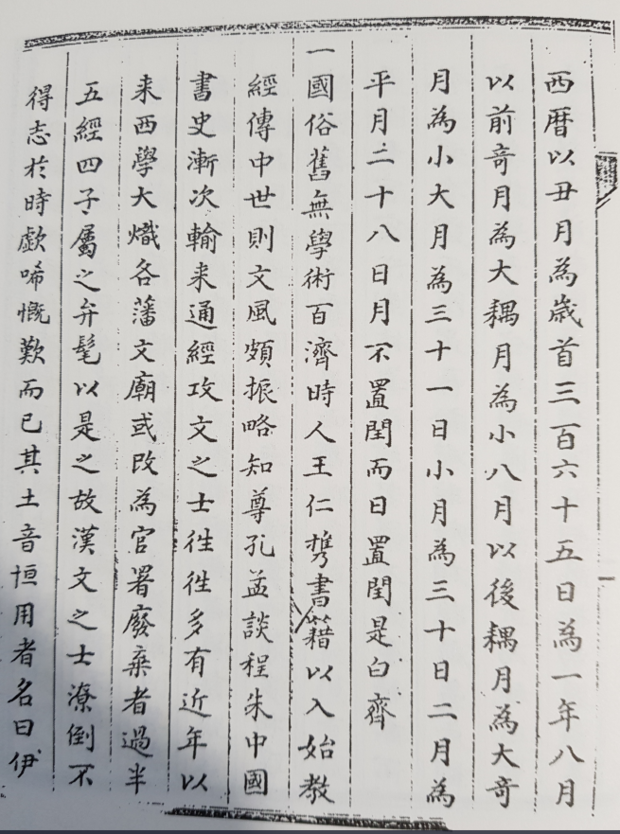 西曆以丑月為歲首三百六十五日為一年八月
以前奇月為大耦月為小八月以後耦月為大奇
月為小大月為三十一日小月為三十日二月為
平月二十八日月不置閏而日置閏是白齊
一國俗舊無學術百濟時人王仁携書籍以入始教
經傳中世則文風頗振略知尊孔孟談程朱中國
書史漸次輸来通經攻文之士徃徃多有近年以
来西學大熾各藩文廟或改為官署廢棄者過半
五經四子屬之弁髦以是之故漢文之士潦倒不
得志於時歔唏慨歎而已其土音恒用者名曰伊